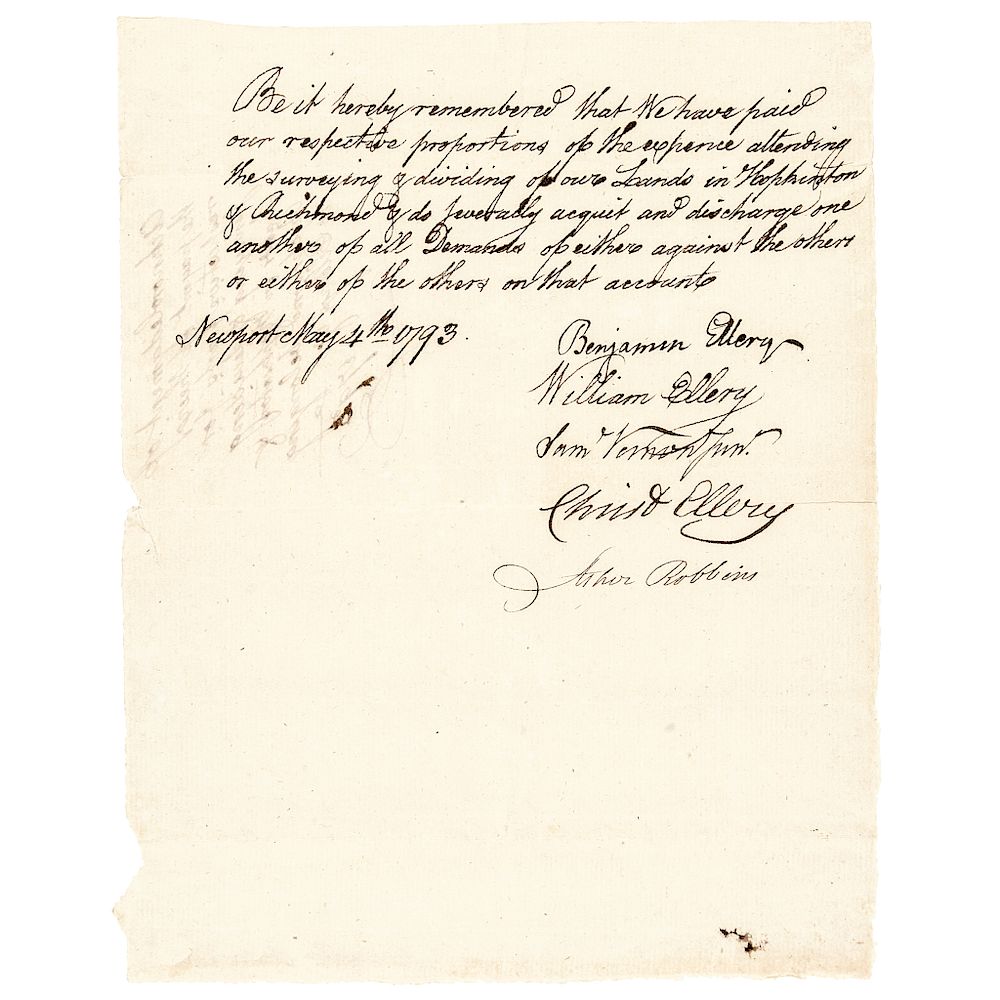 Be it hereby remembered that We have paid
our respective proportions of the expence attending
the surveying & dividing of our Lands in Hopkinton
& Richmond & do severally acquit and discharge one
another of all Demands of either against the others
or either of the others on that account
Newport May 4th 1793.
Benjamin Ellery
William Ellery
Sam Vernon Junr.
Christ Ellery
Asher Robbins